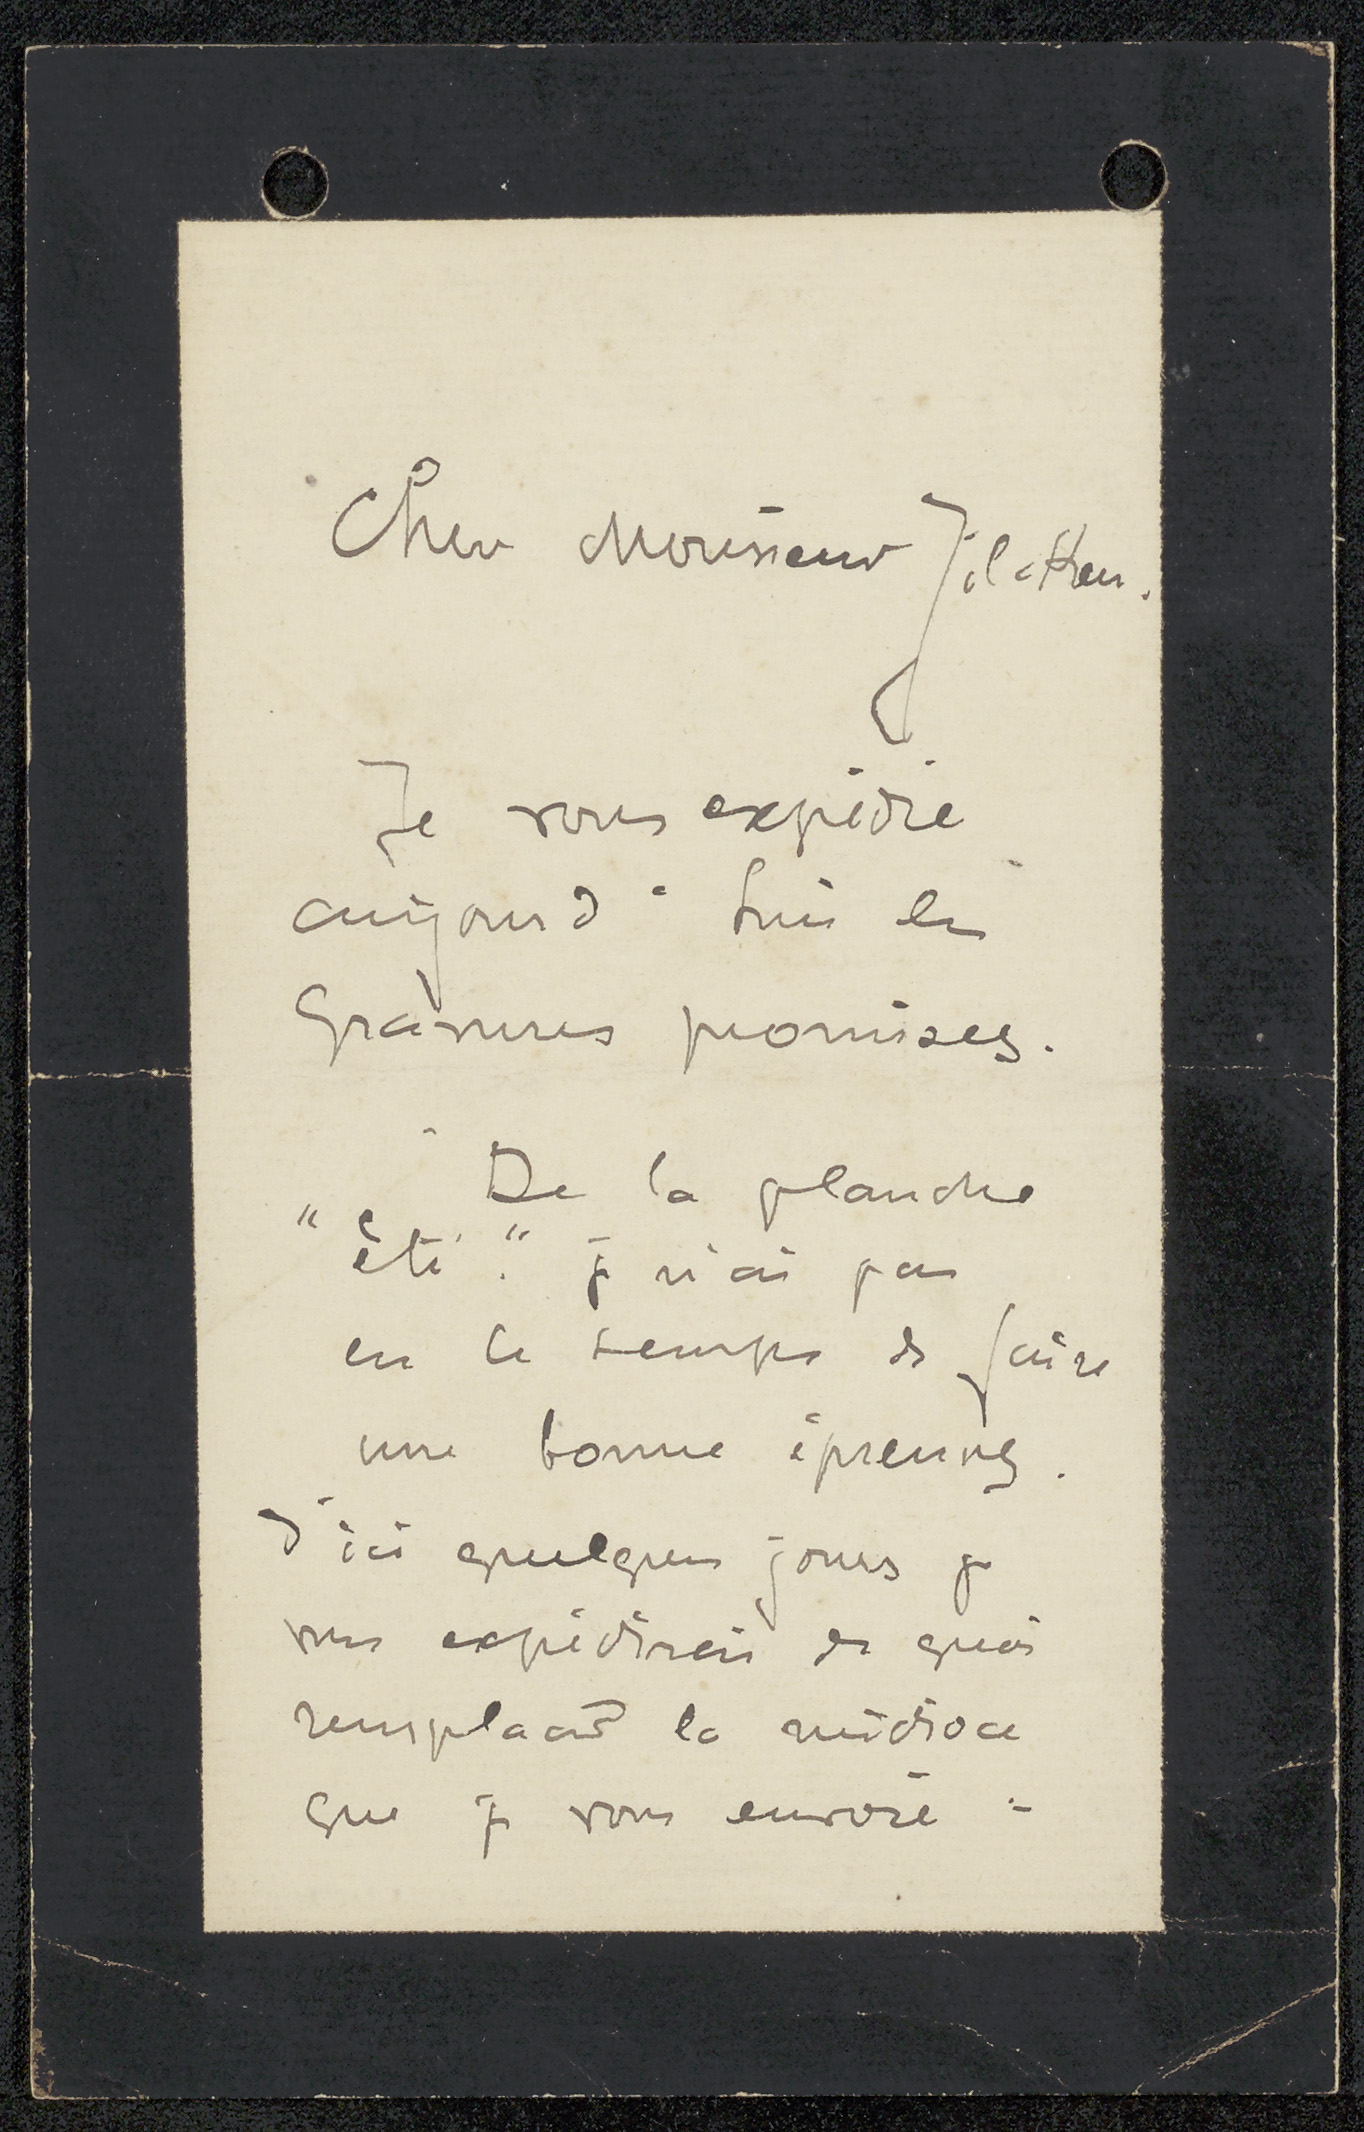 Cher Monsieur Zilcken.
Je vous expédie
aujourd'hui les
Gravures promises.
De la planche
"été." je n'ai pas
eu le temps de faire
une bonne épreuve.
D'ici quelques jours je
vous expédirai de quoi
remplacer la médiocre
que je vous envoie -